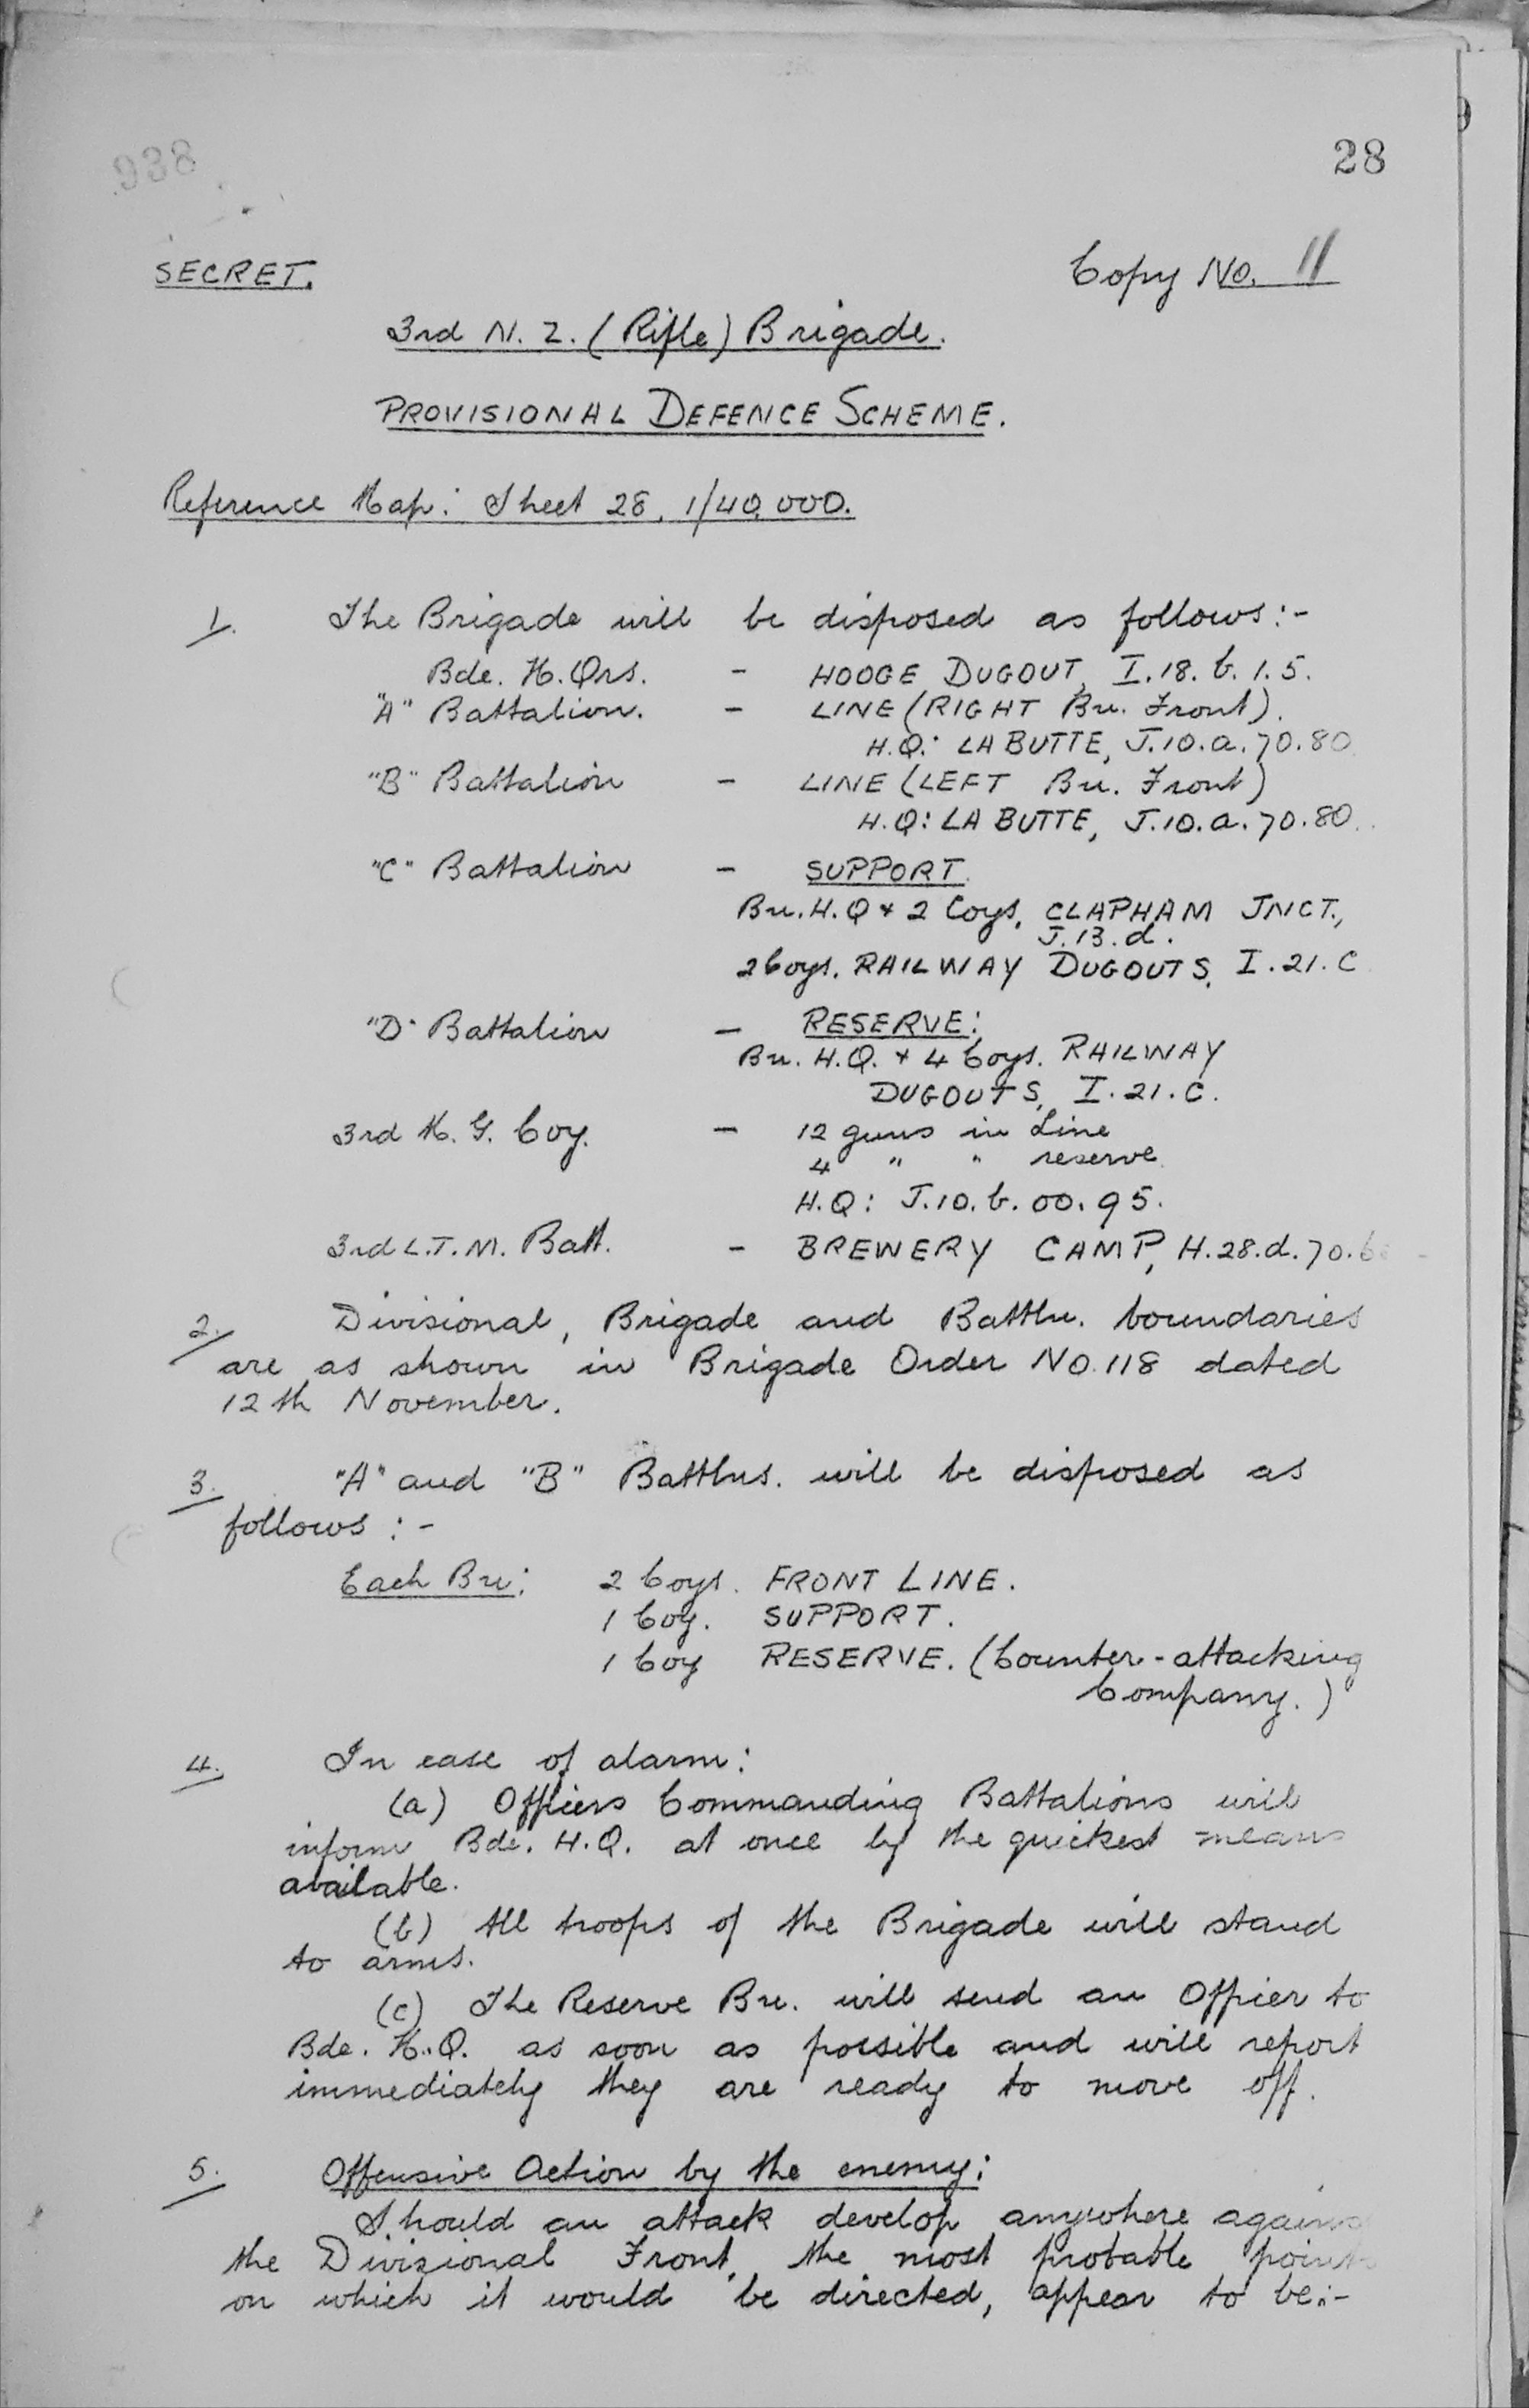 938
28
SECRET.
Copy No. 11
3rd N. Z. (Rifle) Brigade.
PROVISIONAL DEFENCE SCHEME.
Reference Map: Sheet 28, 1/40,000.
1. The Brigade will be disposed as follows:-
Bde. H. Qrs. - HOOGE DUGOUT, I.18.b.1.5.
"A" Battalion. - LINE (RIGHT Bn. Front).
H.Q: LA BUTTE, J.10.a.70.80
"B" Battalion - LINE (LEFT Bn. Front)
H.Q: LA BUTTE, J.10.a.70.80.
"C" Battalion - SUPPORT.
Bn. H.Q + 2 Coys. CLAPHAM JNCT.,
J.13.d.
2 Coys. RAILWAY DUGOUTS, I.21.C
"D" Battalion - RESERVE:
Bn. H.Q. + 4 Coys. RAILWAY
DUGOUTS, I.21.C.
3rd M. G. Coy. - 12 guns in Line
4 " " reserve.
H.Q: J.10.b.00.95.
3rd L.T.M. Batt. - BREWERY CAMP, H.28.d.70.
2. Divisional, Brigade and Battln. boundaries
are as shown in Brigade Order No.118 dated
12th November.
3. "A" and "B" Battlns. will be disposed as
follows:-
Each Bn: 2 Coys. FRONT LINE.
1 Coy. SUPPORT.
1 Coy RESERVE. (Counter-attacking
Company.)
4. In case of alarm:
(a) Officers Commanding Battalions will
inform Bde. H.Q. at once by the quickest means
available.
(b) All troops of the Brigade will stand
to arms.
(c) The Reserve Bn. will send an Officer to
Bde. H.Q. as soon as possible and will report
immediately they are ready to move off.
5. Offensive Action by the enemy:
Should an attack develop anywhere against
the Divisional Front, the most probable points
on which it would be directed, appear to be:-